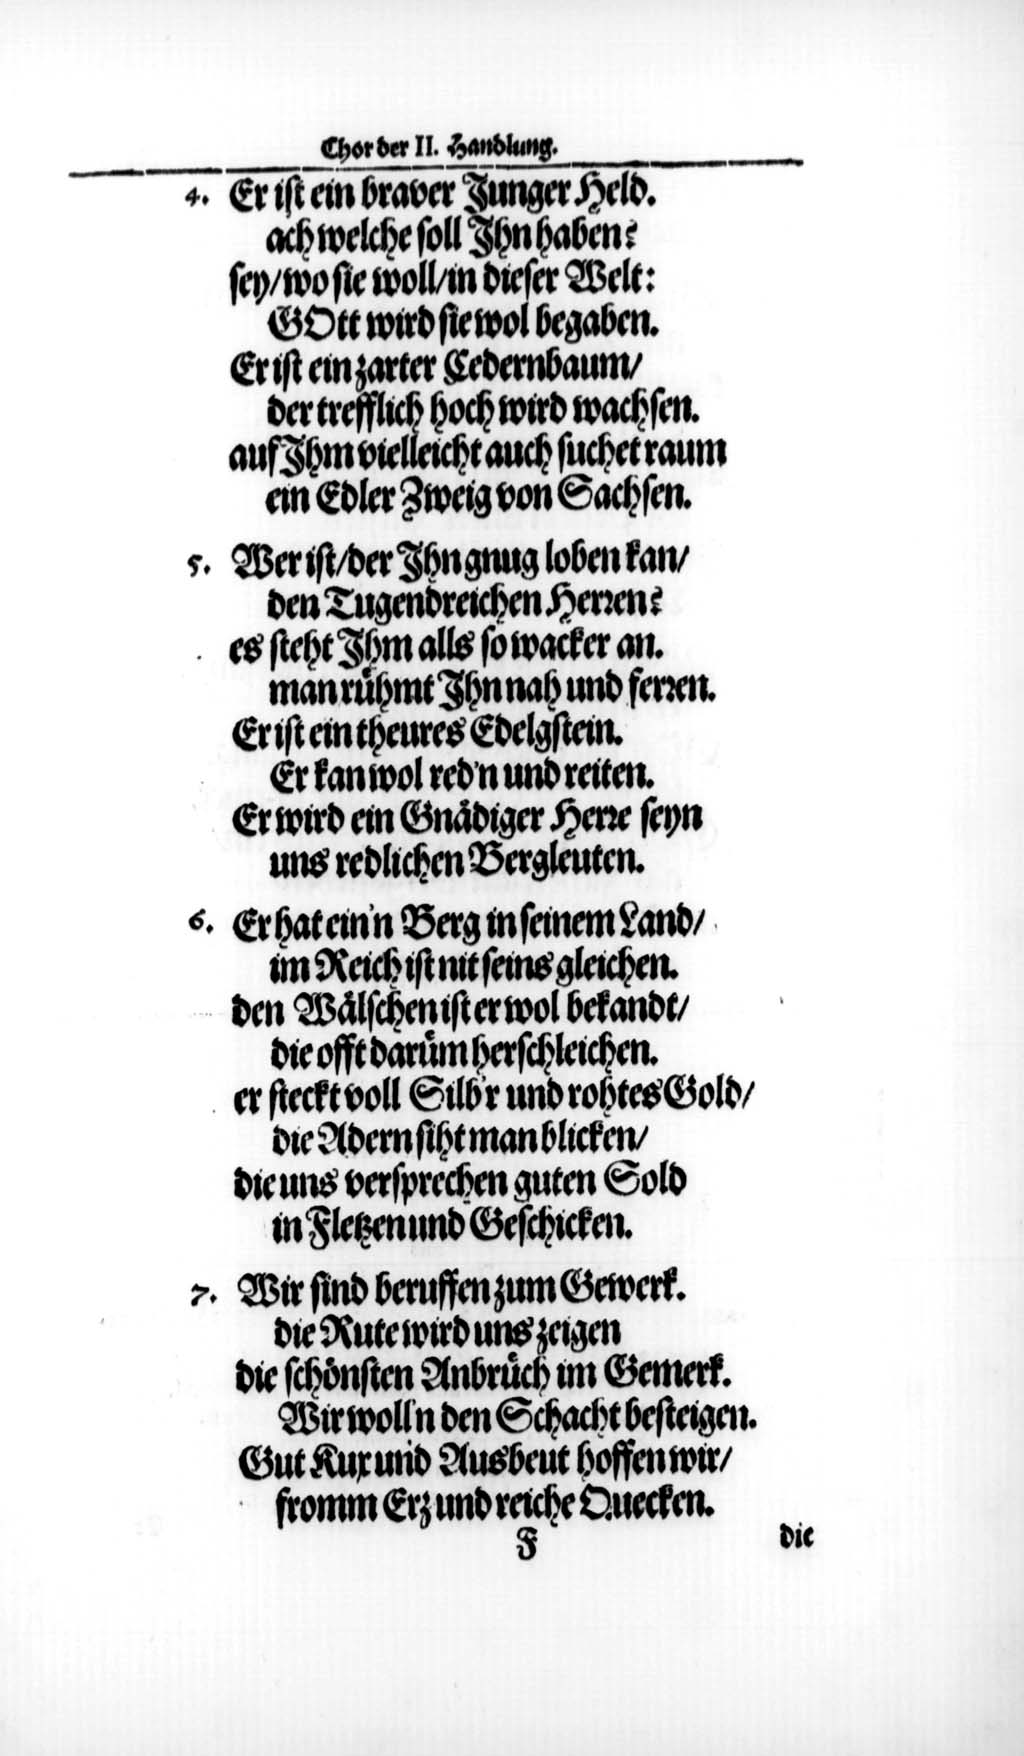 Chor der II. Handlung.
4. Er ist ein braver Junger Held.
ach welche soll Jhn haben?
sey/wo sie woll/in dieser Welt:
GOtt wird sie wol begaben.
Er ist ein zarter Cedernbaum/
der trefflich hoch wird wachsen.
auf Jhm vielleicht auch suchet raum
ein Edler Zweig von Sachsen.
5. Wer ist/der Jhn gnug loben kan/
den Tugendreichen Herren?
es steht Jhm alls so wacker an.
man rühmt Jhn nah und ferren.
Er ist ein theures Edelgstein.
Er kan wol red'n und reiten.
Er wird ein Gnädiger Herre seyn
uns redlichen Bergleuten.
6. Er hat ein'n Berg in seinem Land/
im Reich ist nit seins gleichen.
den Wälschen ist er wol bekandt/
die offt darüm herschleichen.
er steckt voll Silb'r und rohtes Gold/
die Adern siht man blicken/
die uns versprechen guten Sold
in Fletzen und Geschicken.
7. Wir sind beruffen zum Gewerk.
die Rute wird uns zeigen
die schönsten Anbrüch im Gemerk.
Wir woll'n den Schacht besteigen.
Gut Kux und Ausbeut hoffen wir/
fromm Erz und reiche Quecken.
F die